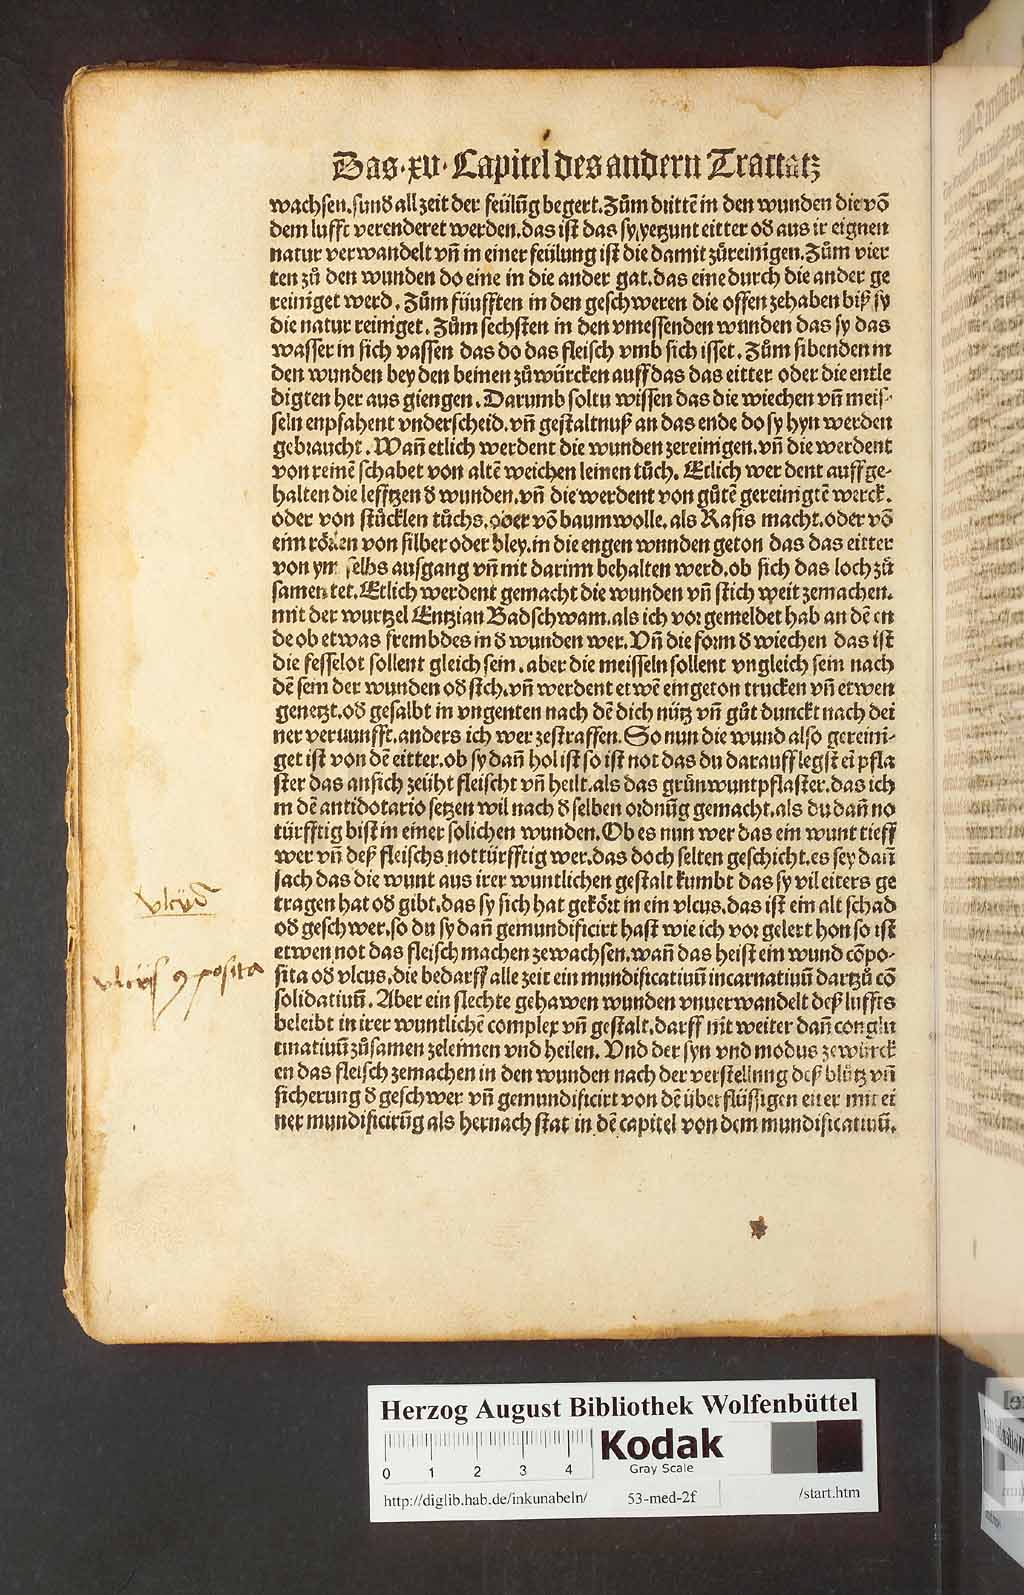 Das .xv. Capitel des andern Tractatz
wachsen. sund all zeit der feülūg begert. Zům drittē in den wunden die võ
dem lufft verenderet werden. das ist das sy, yetzunt eitter oð aus ir eignen
natur verwandelt vñ in einer feülung ist die damit zůreinigen. Zům vier
ten zů den wunden do eine in die ander gat. das eine durch die ander ge
reiniget werd. Zům füufften in den geschweren die offen zehaben biß sy
die natur reiniget. Zům sechsten in den vmessenden wunden das sy das
wasser in sich vassen das do das fleisch vmb sich isset. Zům sibenden in
den wunden bey den beinen zůwürcken auff das das eitter oder die entle
digten her aus giengen. Darumb soltu wissen das die wiechen vñ meis-
seln enpfahent vnderscheid. vñ gestaltnuß an das ende do sy hyn werden
gebraucht. Wañ etlich werdent die wunden zereinigen. vñ die werdent
von reinē schabet von altē weichen leinen tůch. Etlich werdent auffge-
halten die lefftzen ð wunden. vñ die werdent von gůtē gereinigtē werck.
oder von stůcklen tůchs. oder võ baumwolle. als Rasis macht. oder võ
eim rören von silber oder bley. in die engen wnnden geton das das eitter
von ym selbs ausgang vñ nit darinn behalten werd. ob sich das loch zů
samen tet. Etlich werdent gemacht die wunden vñ stich weit zemachen.
mit der wurtzel Entzian Badschwam. als ich vor gemeldet hab an dē en
de ob etwas frembdes in ð wunden wer. Vñ die form ð wiechen das ist
die fesselot sollent gleich sein. aber die meisseln sollent vngleich sein nach
dē sein der wunden oð stich. vñ werdent etwē eingeton trucken vñ etwen
genetzt. oð gesalbt in vngenten nach dē dich nütz vñ gůt dunckt nach dei
ner veruunfft. anders ich wer zestraffen. So nun die wund also gereini-
get ist von dē eitter. ob sy dañ hol ist so ist not das du darauff legst eī pfla
ster das ansich zeüht fleischt vñ heilt. als das grůn wuntpflaster. das ich
in dē antidotario setzen wil nach ð selben ordnūg gemacht. als du dañ no
türfftig bist in einer solichen wunden. Ob es nun wer das ein wunt tieff
wer vñ deß fleischs nottürfftig wer. das doch selten geschicht. es sey dañ
sach das die wunt aus irer wuntlichen gestalt kumbt das sy vil eiters ge
tragen hat oð gibt. das sy sich hat gekört in ein vlcus. das ist ein alt schad
oð geschwer. so du sy dañ gemundificirt hast wie ich vor gelert hon so ist
etwen not das fleisch machen zewachsen. wañ das heist ein wund cōpo-
sita oð vlcus. die bedarff alle zeit ein mundificatiuū incarnatiuū dartzů cō
solidatiuū. Aber ein slechte gehawen wunden vnuerwandelt deß luffts
beleibt in irer wuntlichē complex vñ gestalt. darff nit weiter dañ conglu
tinatiuū zůsamen zeleimen vnd heilen. Vnd der syn vnd modus zewürck
en das fleisch zemachen in den wunden nach der verstellnng deß blůtz vñ
sicherung ð geschwer vñ gemundificirt von dē überflüssigen eiter mit ei
ner mundificirūg als hernach stat in dē capitel von dem mundificatiuū.
vlcus
vlcus 9posita
Herzog August Bibliothek Wolfenbüttel
0 1 2 3 4
Kodak
Gray Scale
http://diglib.hab.de/inkunabeln/ 53-med-2f /start.htm